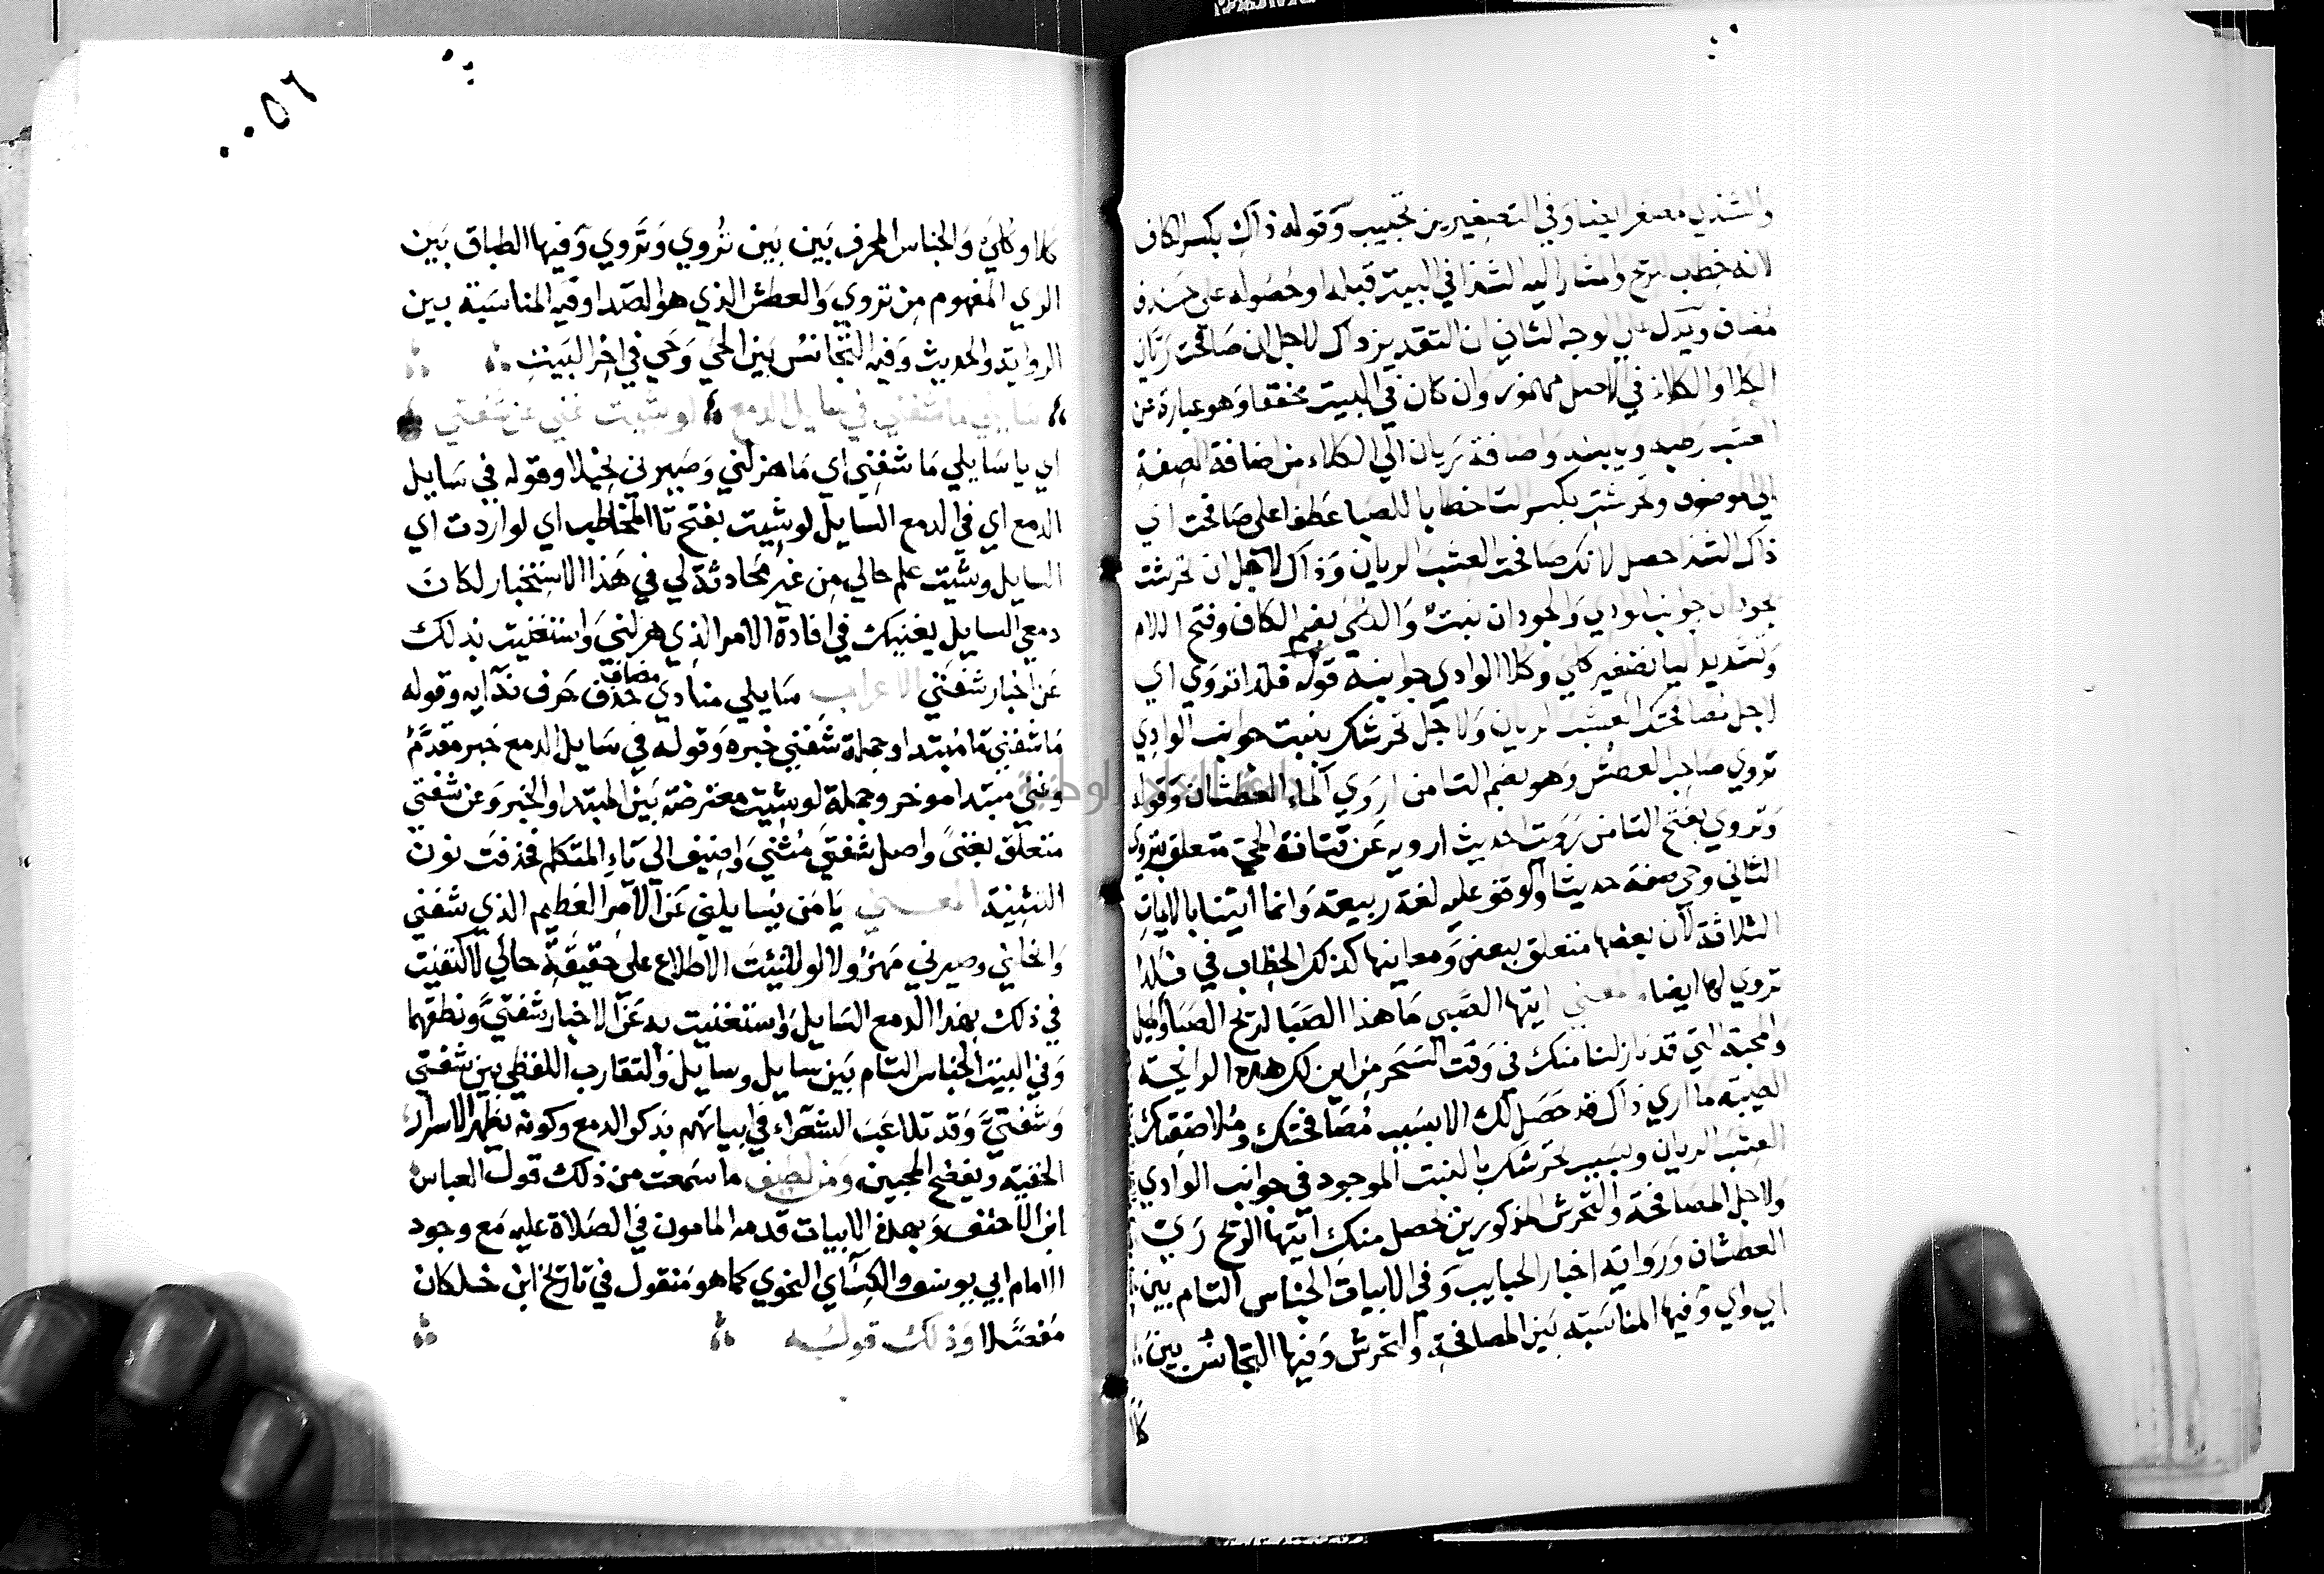 والشذي مصغر ايضا وفي التصغيرين تحبيب وقوله ذاك بكسر الكاف
لانه خطاب الريح والمشار اليه الشذا في البيت قبله او حصوله على حذف
مضاف ويدل على الوجه الثاني ان التقدير ذاك لاجل ان صافحت ريان
الكلا والكلاء في الاصل مهموز وان كان في البيت مخففا وهو عبارة عن
العشب رطبه ويابسه واضافة ريان الى الكلاء من اضافة الصفة
الى الموصوف وتحرشت بكسر التا خطابا للصبا عطفا على صافحت اي
ذاك الشذا حصل لانك صافحت العشب الريان وذاك لاجل ان تحرشت
بحوذان جوانب الوادي والحوذان نبت وكلي بضم الكاف وفتح اللام
وتشديد اليا تصغير كلي وكلا الوادي جوانبه قوله فلذا تروي اي
لاجل مصافحتك العشب الريان ولاجل تحرشك بنبت جوانب الوادي
تروي صاحب العطش وهو بضم التا من اروي الماء العطشان وقوله
وتروي بفتح التا من رويت الحديث ارويه عن فتاة الحي متعلق بتروي
الثاني وحي صفة حديثا والوقف عليه لغة ربيعة وانما اتينا بالابيات
الثلاثة لان بعضها متعلق ببعض ومعانيها كذلك الخطاب في فلذا
تروي لها ايضا المعني ايتها الصبي ما هذا الصبا لريح الصبا والميل
والمحبة التي قد بان لنا منك في وقت السحر من اين لك هذه الرايحة
الطيبة ما اري ذاك قد حصل لك الا بسبب مصافحتك وملاصقتك
العشب الريان وبسبب تحرشك بالنبت الموجود في جوانب الوادي
ولاجل المصافحة والتحرش المذكورين يحصل منك ايتها الريح ري
العطشان ورواية اخبار الحبايب وفي الابيات الجناس التام بين
اي واي وفيها المناسبة بين المصافحة والتحرش وفيها التجانس بين
كلا
٥٦
كلا وكلي والجناس المحرف بين بين تروي وتروي وفيها الطباق بين
الري المفهوم من تروي والعطش الذي هو الصدا وفيه المناسبة بين
الرواية والحديث وفيه التجانس بين الحي وحي في اخر البيت
سايلي ما شفني في سايل الدمع لو شيت غني عن شفتي
اي يا سايلي ما شفني اي ما هزلني وصيرني نحيلا وقوله في سايل
الدمع اي في الدمع السايل لو شيت بفتح تا المخاطب اي لو اردت اي
السايل وشيت علم حالي من غير محادثة لي في هذا الاستخبار لكان
دمعي السايل يغنيك في افادة الامر الذي هزلني واستغنيت بذلك
عن اخبار شفتي الاعراب سايلي منادي مضاف حذف حرف ندايه وقوله
ما شفني ما مبتدا وجملة شفني خبره وقوله في سايل الدمع خبر مقدم
وغني مبتدا موخر وجملة لو شيت معترضة بين المبتدا والخبر وعن شفتي
متعلق بغني واصل شفتي مثني واضيف الى ياء المتكلم فحذفت نون
التثنية المعني يا من يسايلني عن الامر العظيم الذي شفني
وانحلني وصيرني مهزولا لو شئت الاطلاع على حقيقة حالي لاكتفيت
في ذلك بهذا الدمع السايل واستغنيت به عن الاخبار شفتي ونطقهما
وفي البيت الجناس التام بين سايل وسايل والتقارب اللفظي بين شفني
وشفتي وقد تلاعب الشعراء في ابياتهم بذكر الدمع وكونه يظهر الاسرار
الخفية ويفضح المحبين ومن لطيف ما سمعت من ذلك قول العباس
ابن الاحنف وبهذه الابيات قدمه المامون في الصلاة عليه مع وجود
الامام ابي يوسف والكسآي النحوي كما هو منقول في تاريخ ابن خلكان
مفصلا وذلك قوله